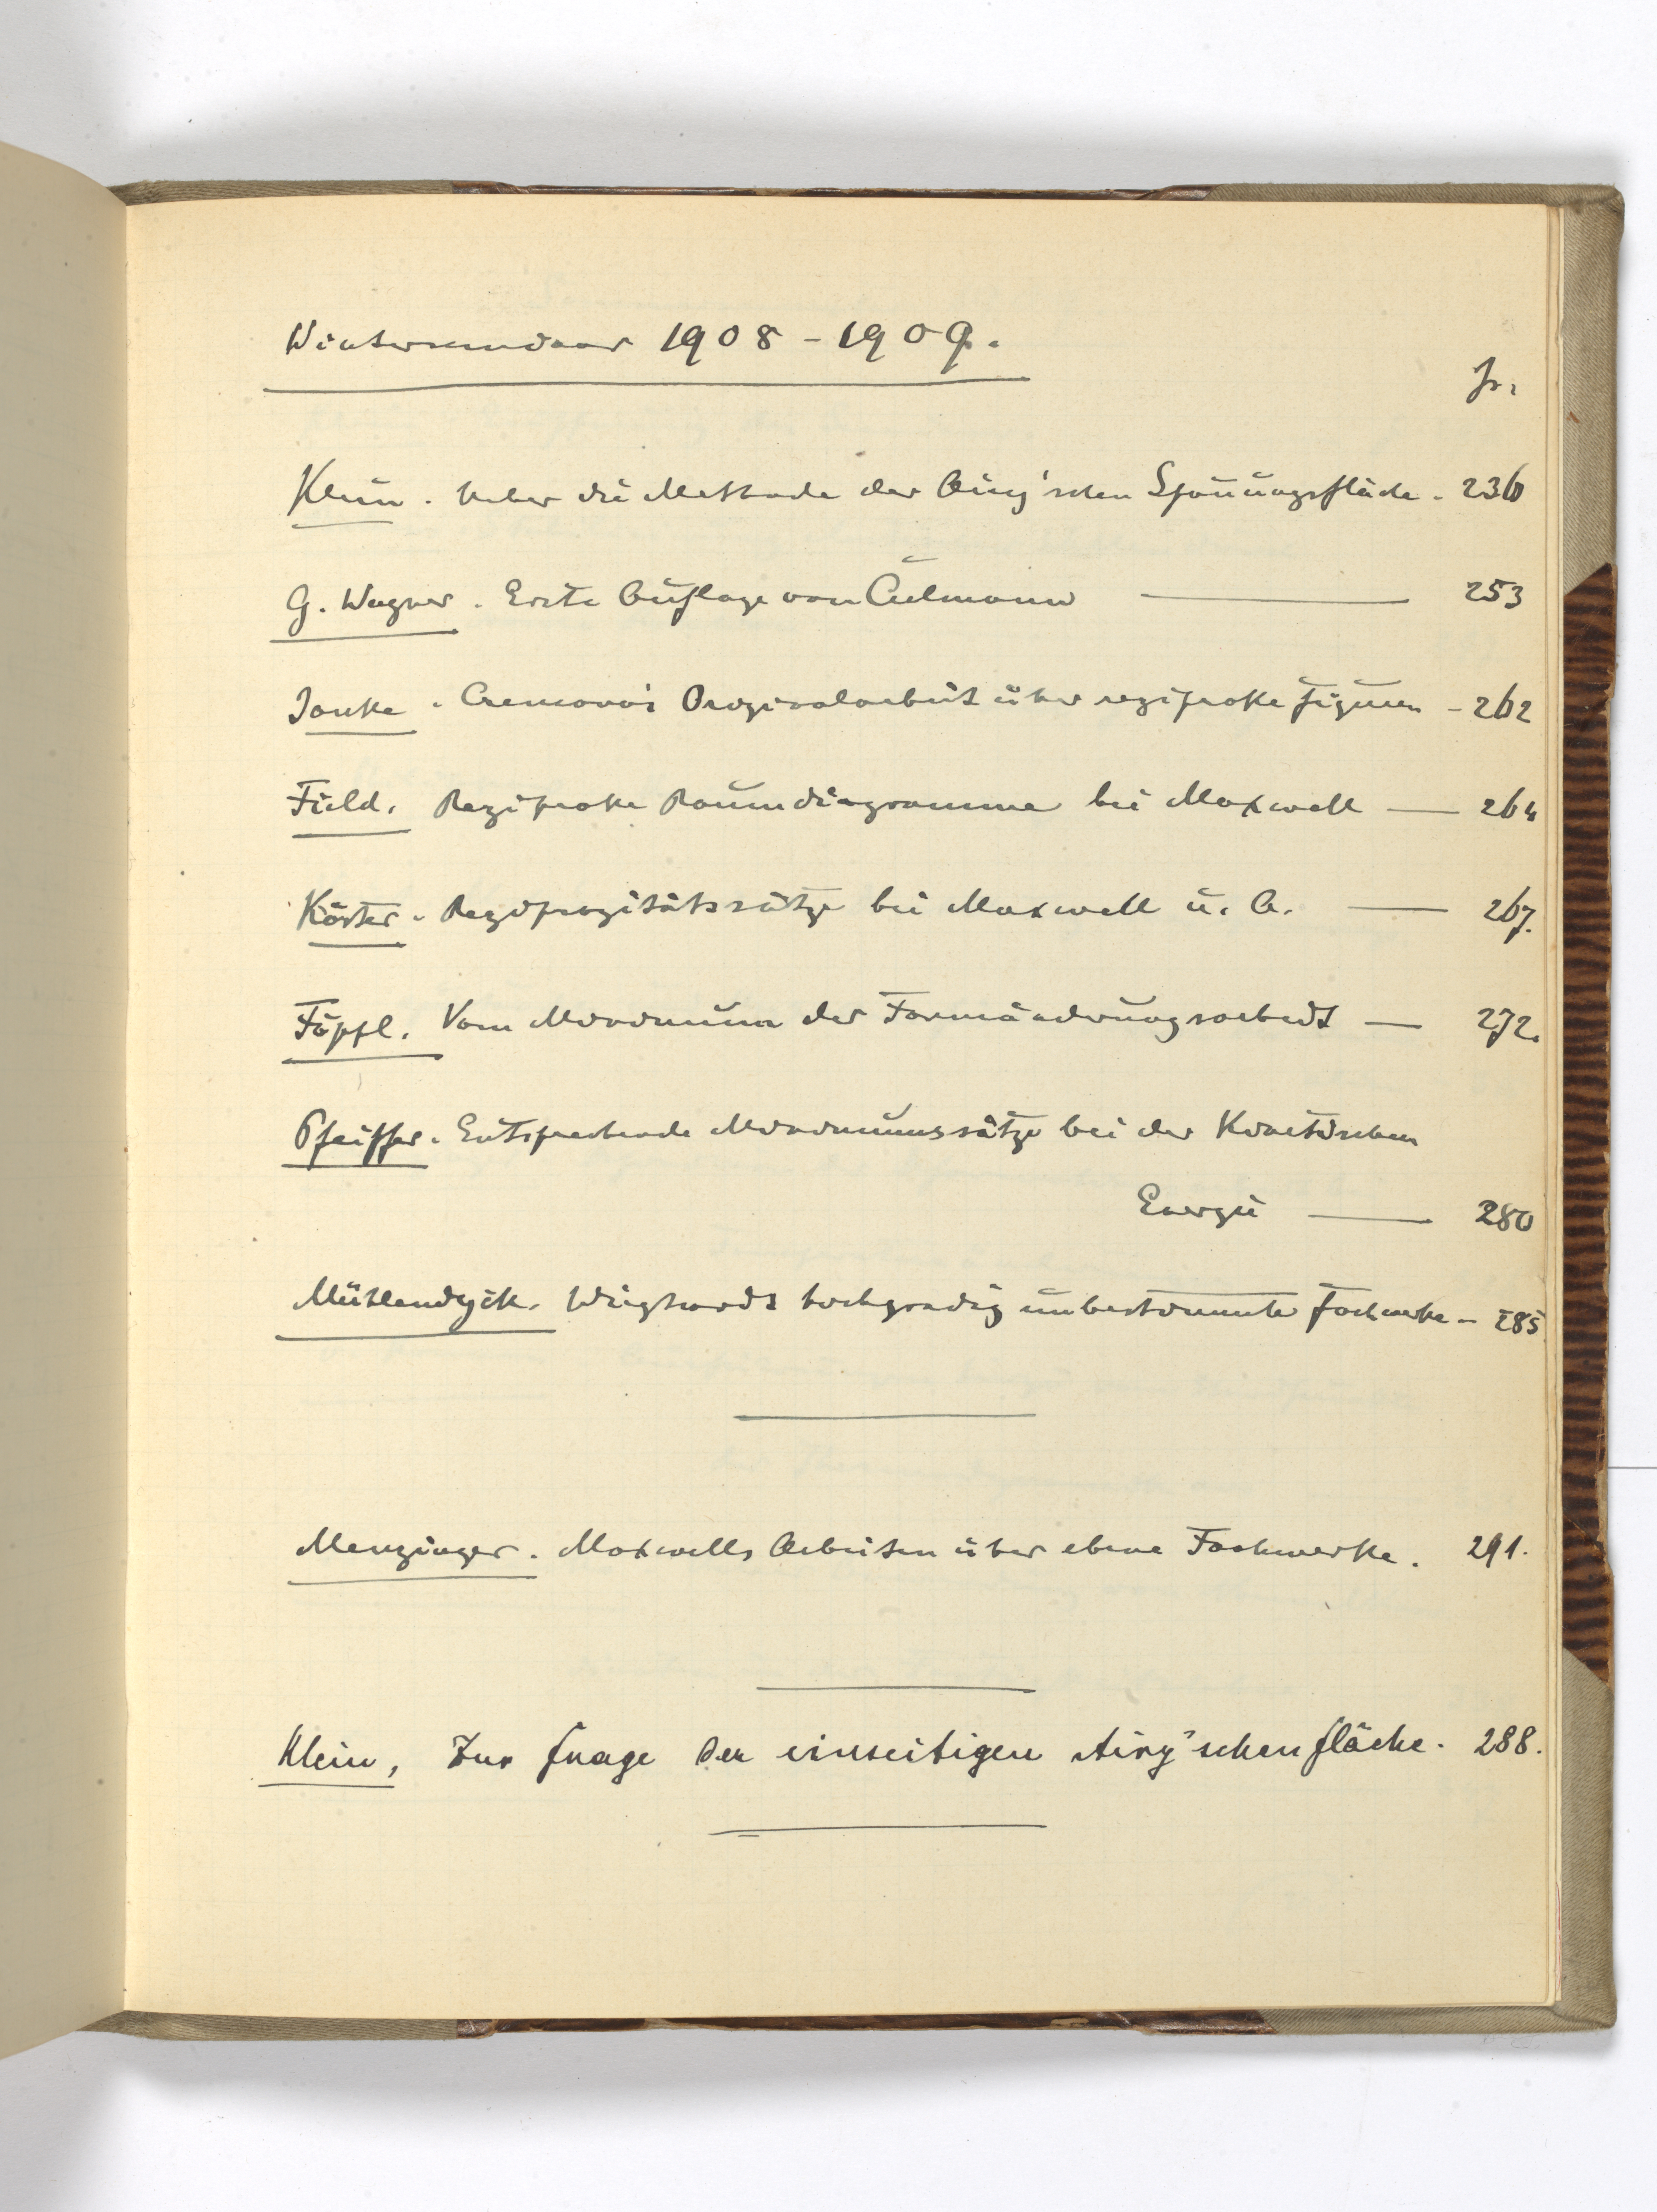 Winterseminar 1908 - 1909.
p.
Klein. Ueber die Methode der Airy'schen Spannungsfläche. 236
G. Wagner. Erste Auflage von Culmann 253
Janke. Cremonas Originalarbeit über reziproke Figuren - 262
Field. Reziproke Raumdiagramme bei Maxwell — 264
Körter. Reziprozitätssätze bei Maxwell u. A. — 267.
Föppl. Vom Minimum der Formänderungsarbeit — 272.
Pfeiffer. Entsprechende Minimumssätze bei der Kinetischen
Energie — 280
Mühlendyck. Wieghardts hochgradig unbestimmte Fachwerke - 285
Menzinger. Maxwells Arbeiten über ebene Fachwerke. 291.
Klein, Zur Frage der einseitigen Airy'schen Fläche. 288.